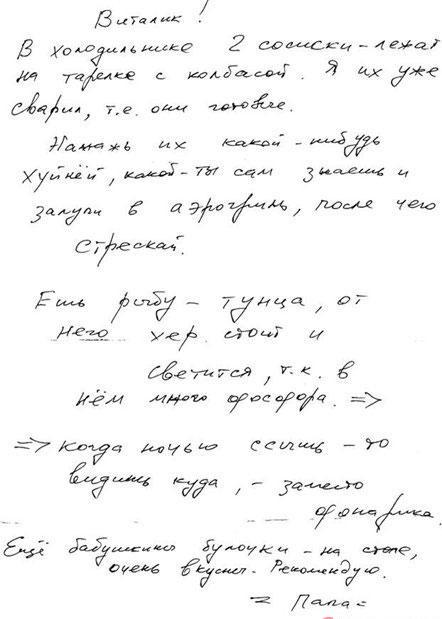 Виталик!
В холодильнике 2 сосиски - лежат
на тарелке с колбасой. Я их уже
сварил, т.е. они готовые.
Намажь их какой-нибудь
хуйнёй, какой-ты сам знаешь и
залупи в аэрогриль, после чего
стрескай.
Ешь рыбу - тунца, от
него хер стоит и
светится, т.к. в
нём много фосфора. =>
=> когда ночью ссышь - то
видишь куда, - заместо
фонарика.
Ещё бабушкины булочки - на столе,
очень вкусны. Рекомендую.
= Папа =